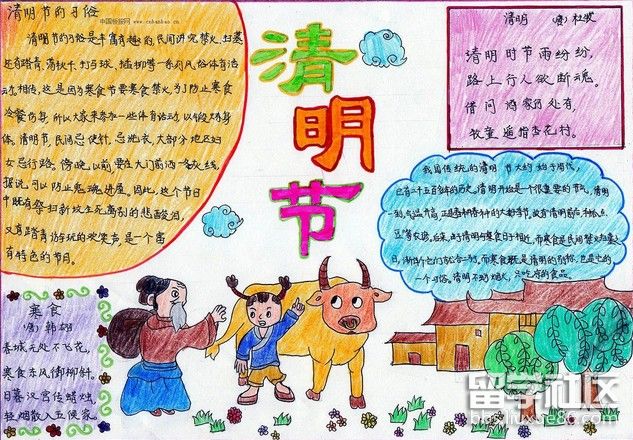 清明节的习俗
中国板报网 www.cnhanbao.cn
清明节的习俗是丰富有趣的,民间讲究禁火、扫墓
还有踏青、荡秋千、打马球、插柳等一系列风俗体育活
动,相传,这是因为寒食节要寒食禁火,为了防止寒食
冷餐伤身,所以大家来参加一些体育活动,以锻炼身
体。清明节,民间忌使针,忌洗衣,大部分地区妇
女忌行路。傍晚以前,要在大门前洒一条灰线,
据说,可以防止鬼魂进屋,因此,这个节日
中既有祭扫新坟生死离别的悲酸泪,
又有踏青游玩的欢笑声,是一个富
有特色的节日。
清明节
清明 (唐)杜牧
清明时节雨纷纷,
路上行人欲断魂。
借问酒家何处有,
牧童遥指杏花村。
我国传统的清明节大约始于周代,
已有二千五百多年的历史,清明开始是一个很重要的节气,清明
一到,气温升高,正是春耕春种的大好季节,故有清明前后,种瓜点
豆等农谚。后来,由于清明与寒食日子相近,而寒食是民间禁火扫墓之
日,渐渐的
寒食
(唐)韩翃
春城无处不飞花,
寒食东风御柳斜。
日暮汉宫传蜡烛,
轻烟散入五侯家。
留学社区